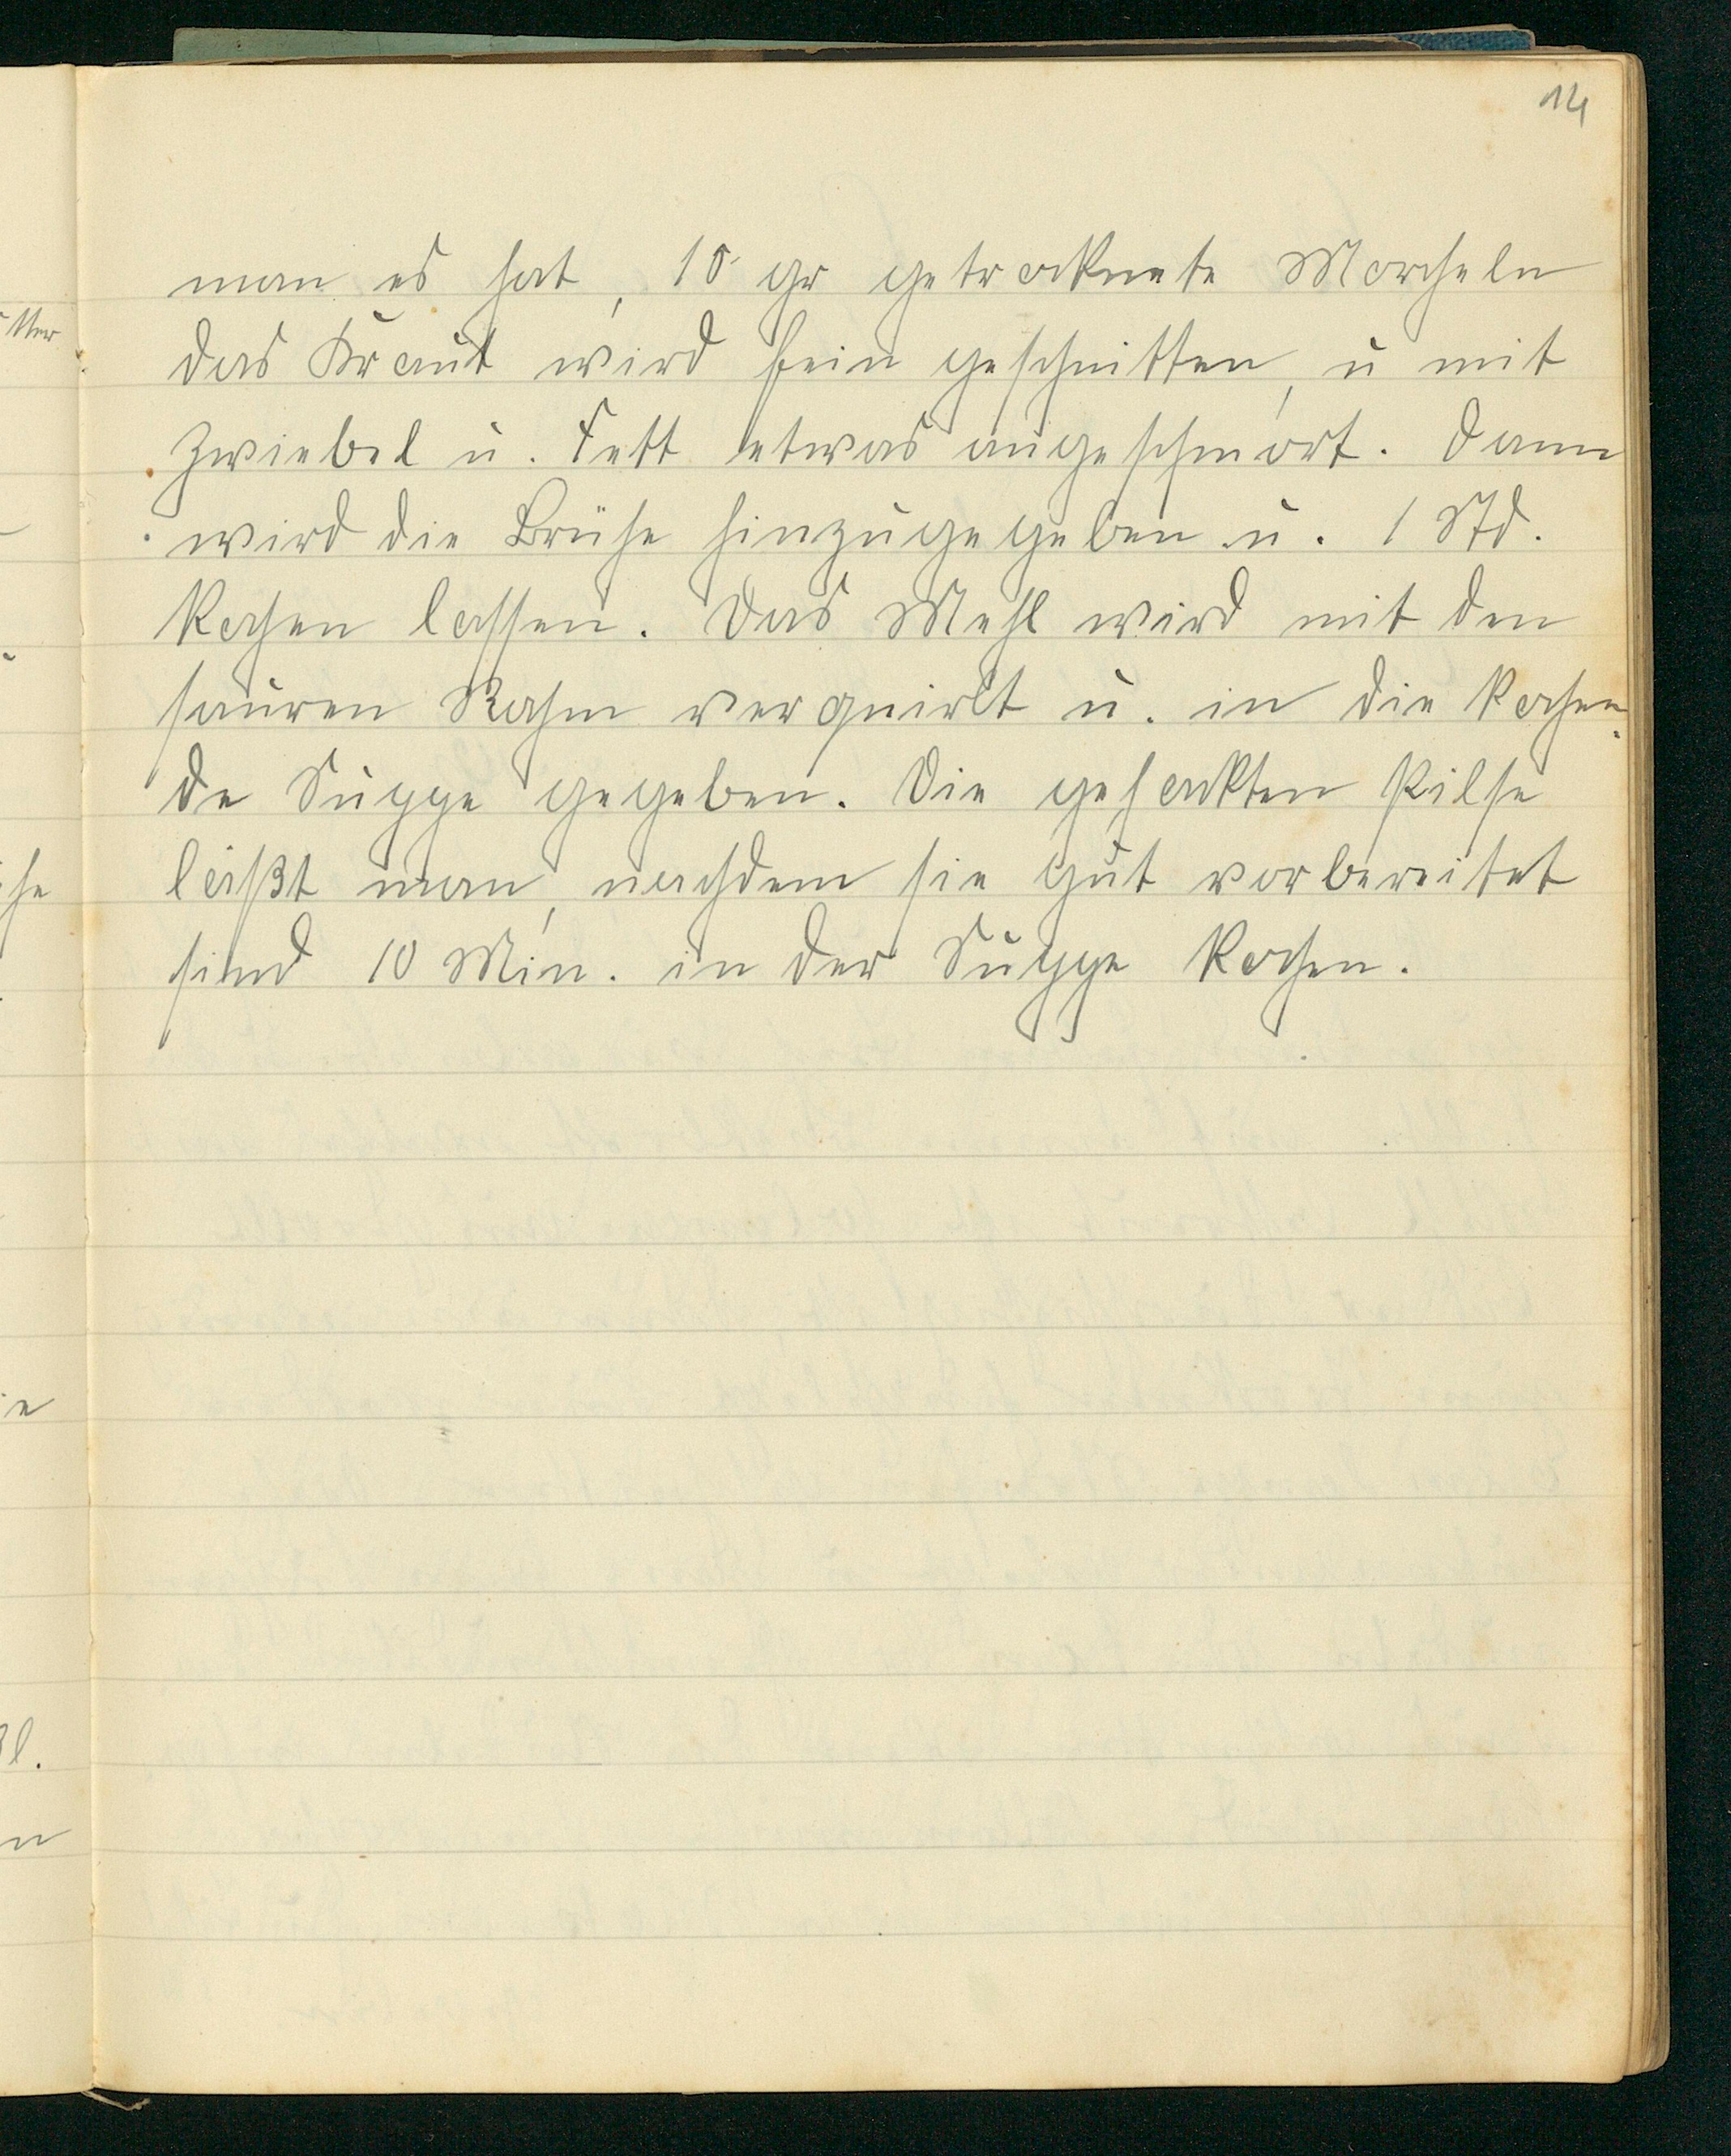 14
man es hat, 10 gr getrocknete Morcheln
das Kraut wird fein geschnitten, u mit
Zwiebel u. Fett etwas angeschmort. Dann
wird die Brühe hinzugegeben u. 1 Std.
kochen lassen. Das Mehl wird mit den
sauren Rahm verquirlt u. in die kochen-
de Suppe gegeben. Die gehackten Pilse
läßt man, nachdem sie gut vorbereitet
sind 10 Min. in der Suppe kochen.